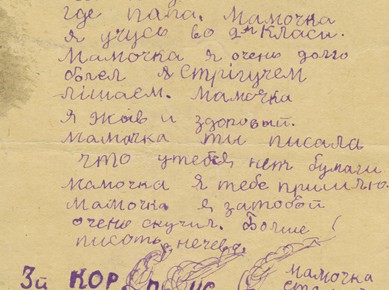 где папа. Мамочка
я учусь во 2м Класи.
Мамочка я очень долго
болел я Стрігучем
лішаем. Мамочка
я жыв и здоровый.
мамочка ти писала
что утебя нет бумаги.
мамочка я тебе пришлю.
Мамочка я затобой
очень скучил. Больше
писать нечево!
3й КОРПУС
мамочка